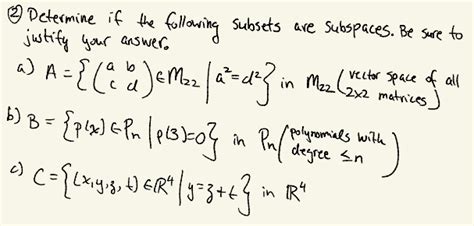 ② Determine if the following subsets are subspaces. Be sure to
justify your answer.
a) A = {(a b
c d) ∈ M₂₂ | a² = d²} in M₂₂ (vector space of all
2x2 matrices)
b) B = {p(x) ∈ Pn | p(3) = 0} in Pn (polynomials with
degree ≤ n)
c) C = {(x, y, z, t) ∈ ℝ⁴ | y = z + t} in ℝ⁴